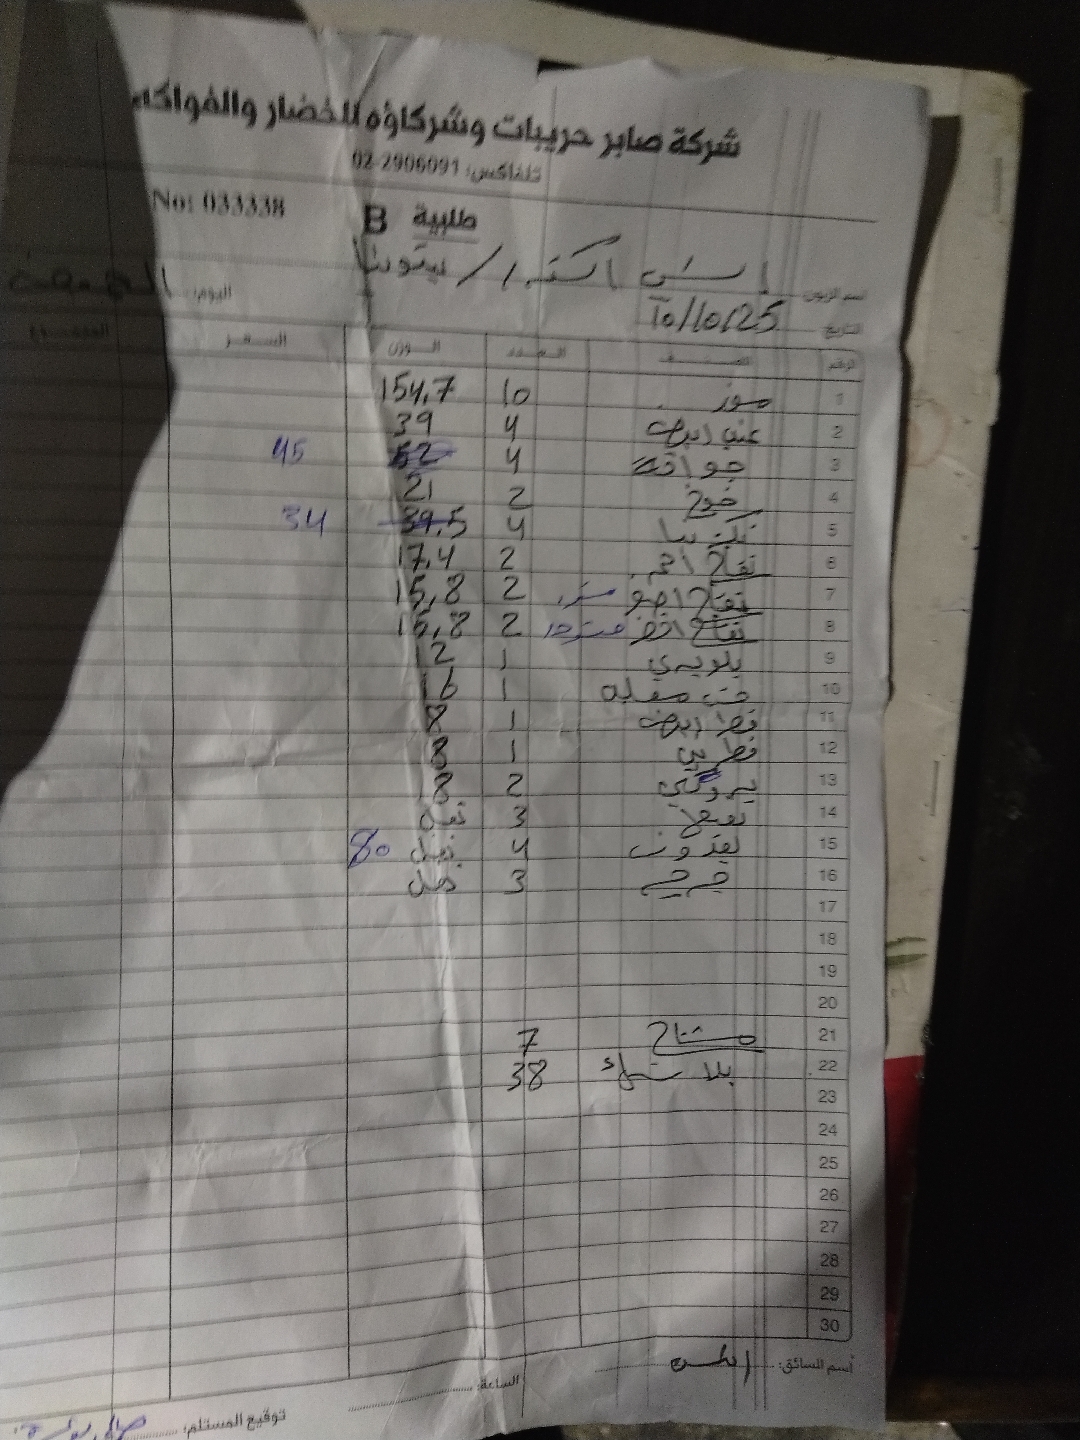 شركة صابر حريبات وشركاؤه للخضار والفواكه
تلفاكس: 02-2906091
No: 033338
طلبية B
اسم الزبون:
اليوم: الجمعة
التاريخ 10/10/25
الرقم الصنف العدد الوزن السعر المجموع
1 موز 10 154,7
2 عنب ابيض 4 39
3 جوافة 4 52 45
4 خوخ 2 21
5 4 39,5 34
6 تفاح احمر 2 17,4
7 تفاح اصفر 2 15,8
8 تفاح اخضر 2 15,8
9 بلوبيري 1 12
10 1 16
11 فطر ابيض 1 8
12 فطر بني 1 8
13 بروكلي 2 18
14 نعنع 3
15 بقدونس 4 80
16 جرجير 3
17
18
19
20
21 مشتاح 7
22 بلاستيك 38
23
24
25
26
27
28
29
30
اسم السائق:
الساعة:
توقيع المستلم: